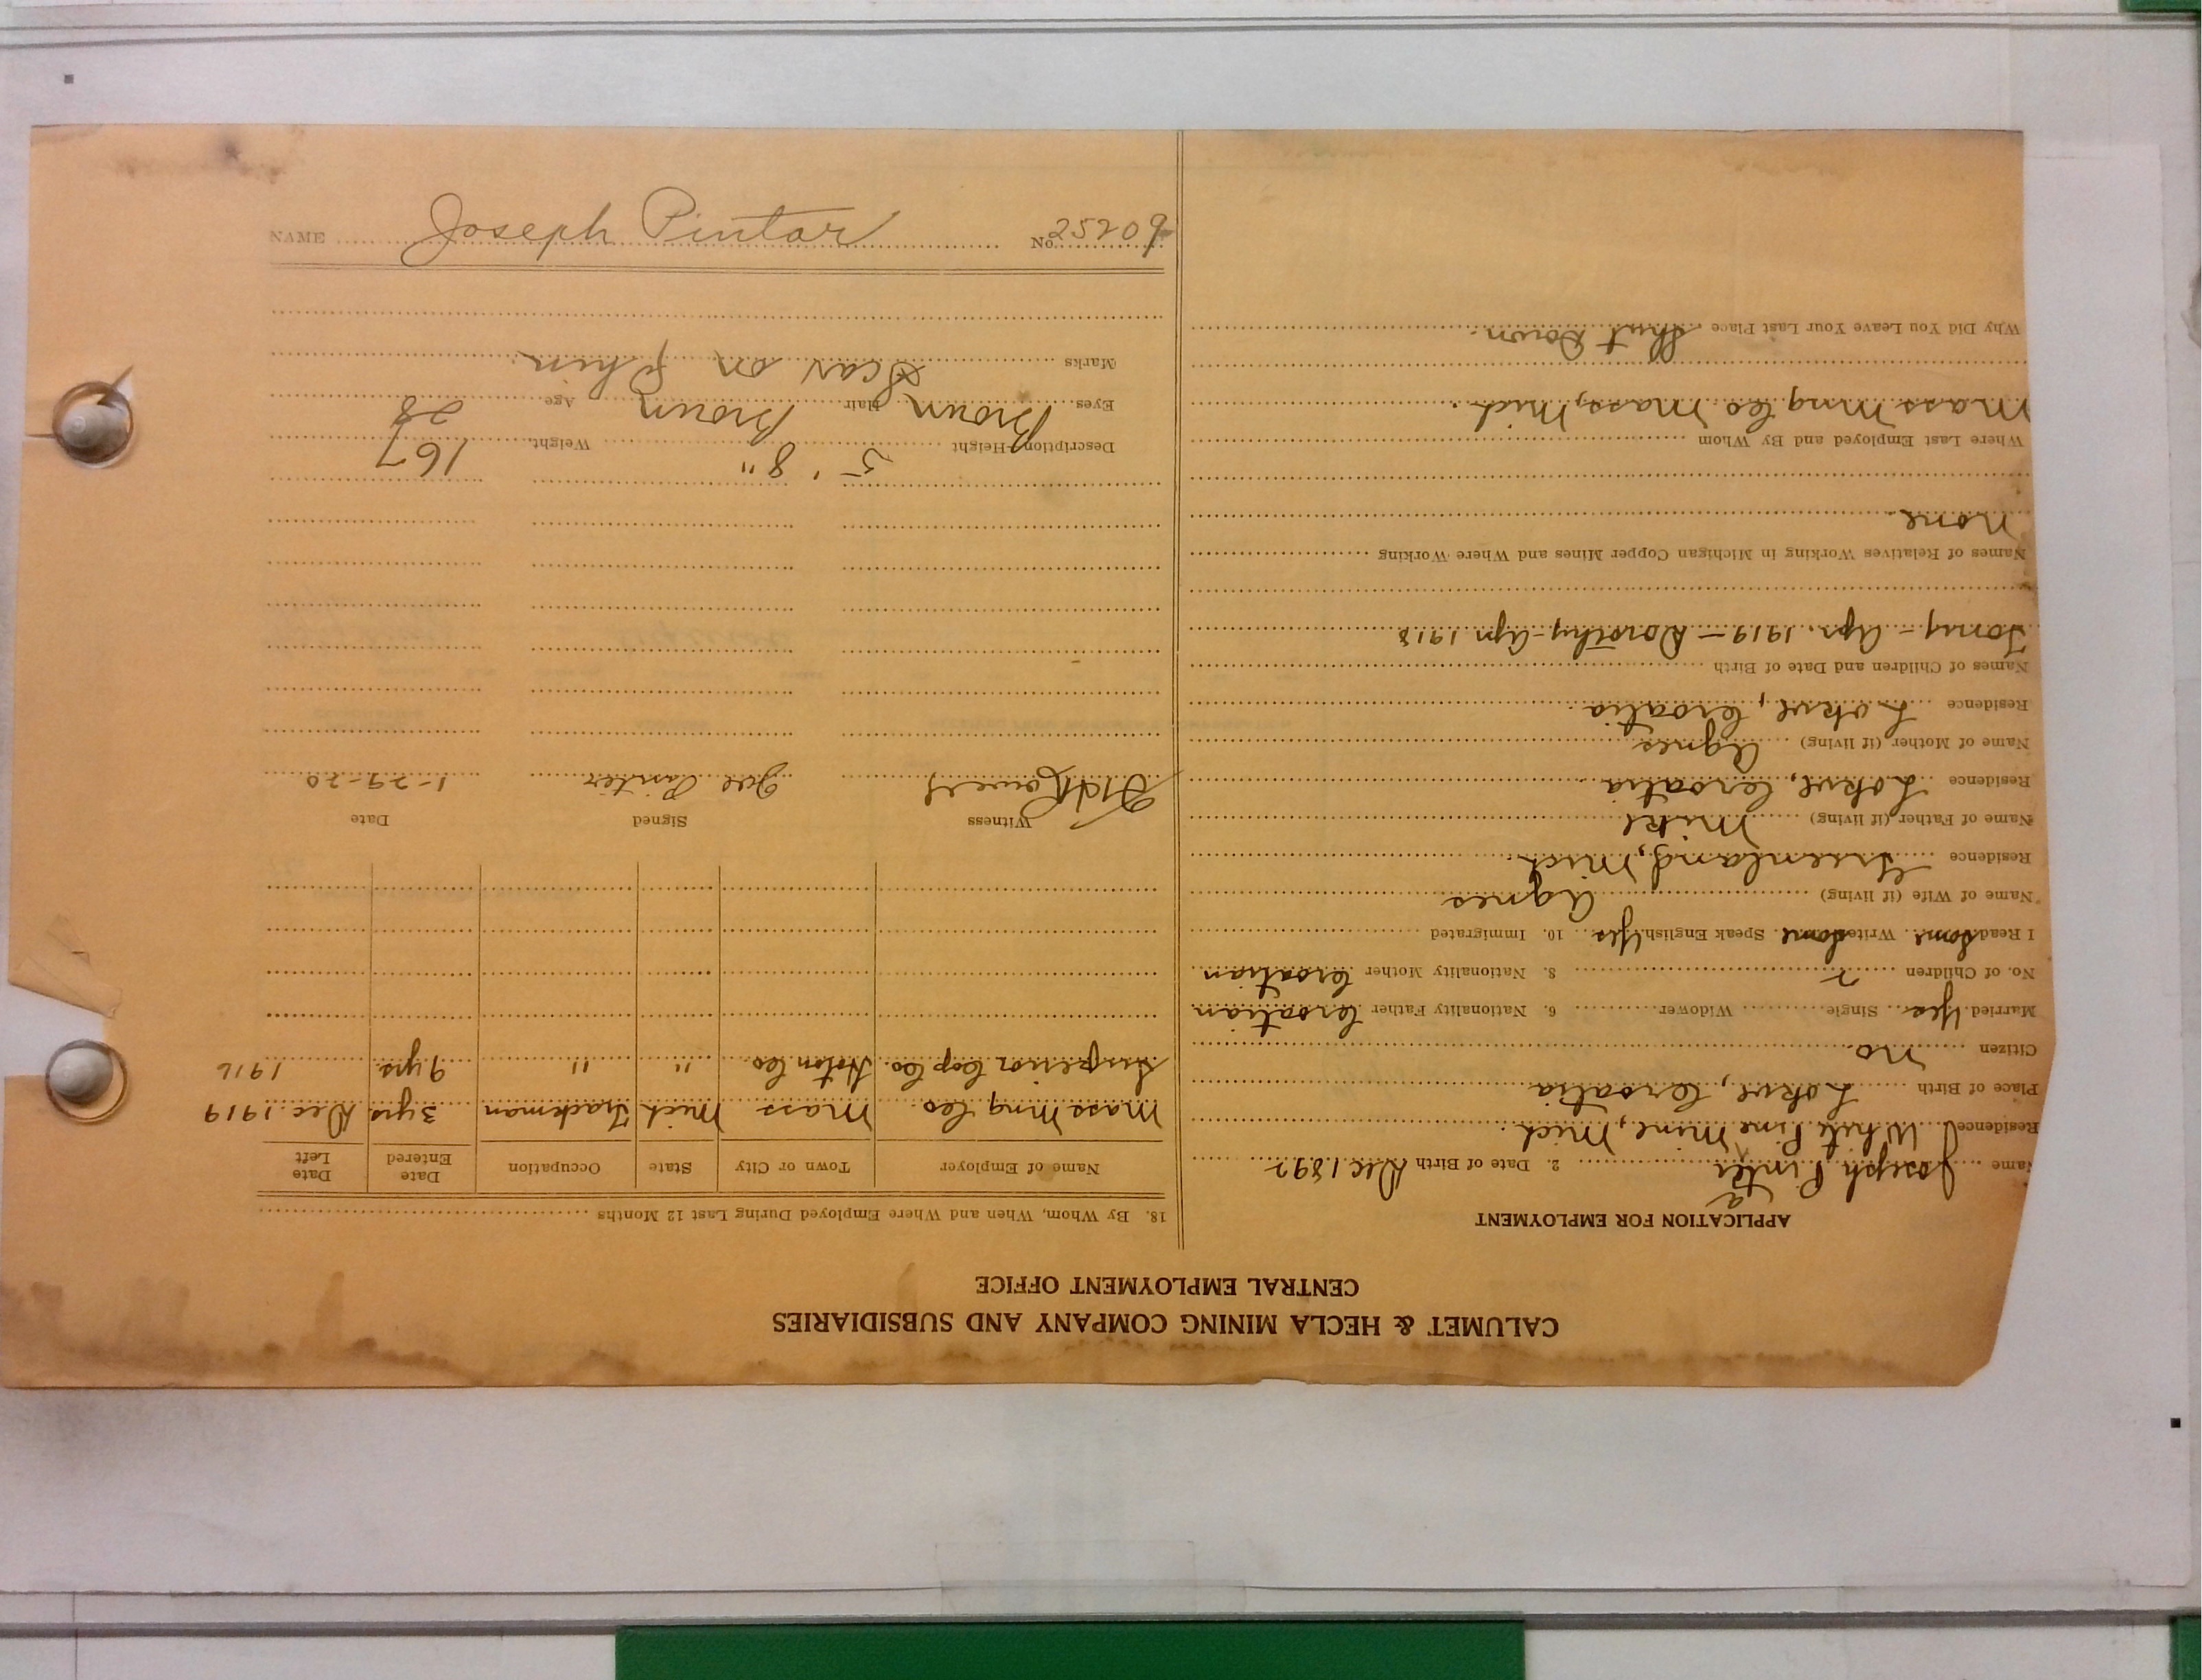 CALUMET & HECLA MINING COMPANY AND SUBSIDIARIES
CENTRAL EMPLOYMENT OFFICE
APPLICATION FOR EMPLOYMENT
a
Name Joseph Pinter 2. Date of Birth Dec 1892
Residence White Pine Mine, Mich.
Place of Birth Lokve, Croatia
Citizen No.
Married Yes Single Widower 6. Nationality Father Croatian
No. of Children 2 8. Nationality Mother Croatian
I Read Some Write Some Speak English Yes 10. Immigrated
Name of Wife (if living) Agnes
Residence Greenland, Mich
Name of Father (if living) Mike
Residence Lokve, Croatia
Name of Mother (if living) Agnes
Residence Lokve, Croatia
Names of Children and Date of Birth
Tony - Apr. 1919 - Dorothy - Apr 1918
Names of Relatives Working in Michigan Copper Mines and Where Working
None.
Where Last Employed and By Whom
Mass Mng Co Mass, Mich.
Why Did You Leave Your Last Place Shut Down.
18. By Whom, When and Where Employed During Last 12 Months
Name of Employer Town or City State Occupation Date Entered Date Left
Mass Mng Co. Mass Mich Trackman 3 yrs Dec. 1919
Superior Cop Co. Hoton Co " " 9 yrs. 1916
Witness Signed Date
Joe Pinter 1-29-20
Description-Height 5' 8" Weight 167
Eyes Brown Hair Brown Age 28
Marks Scar on Chin.
NAME Joseph Pintar No. 25209